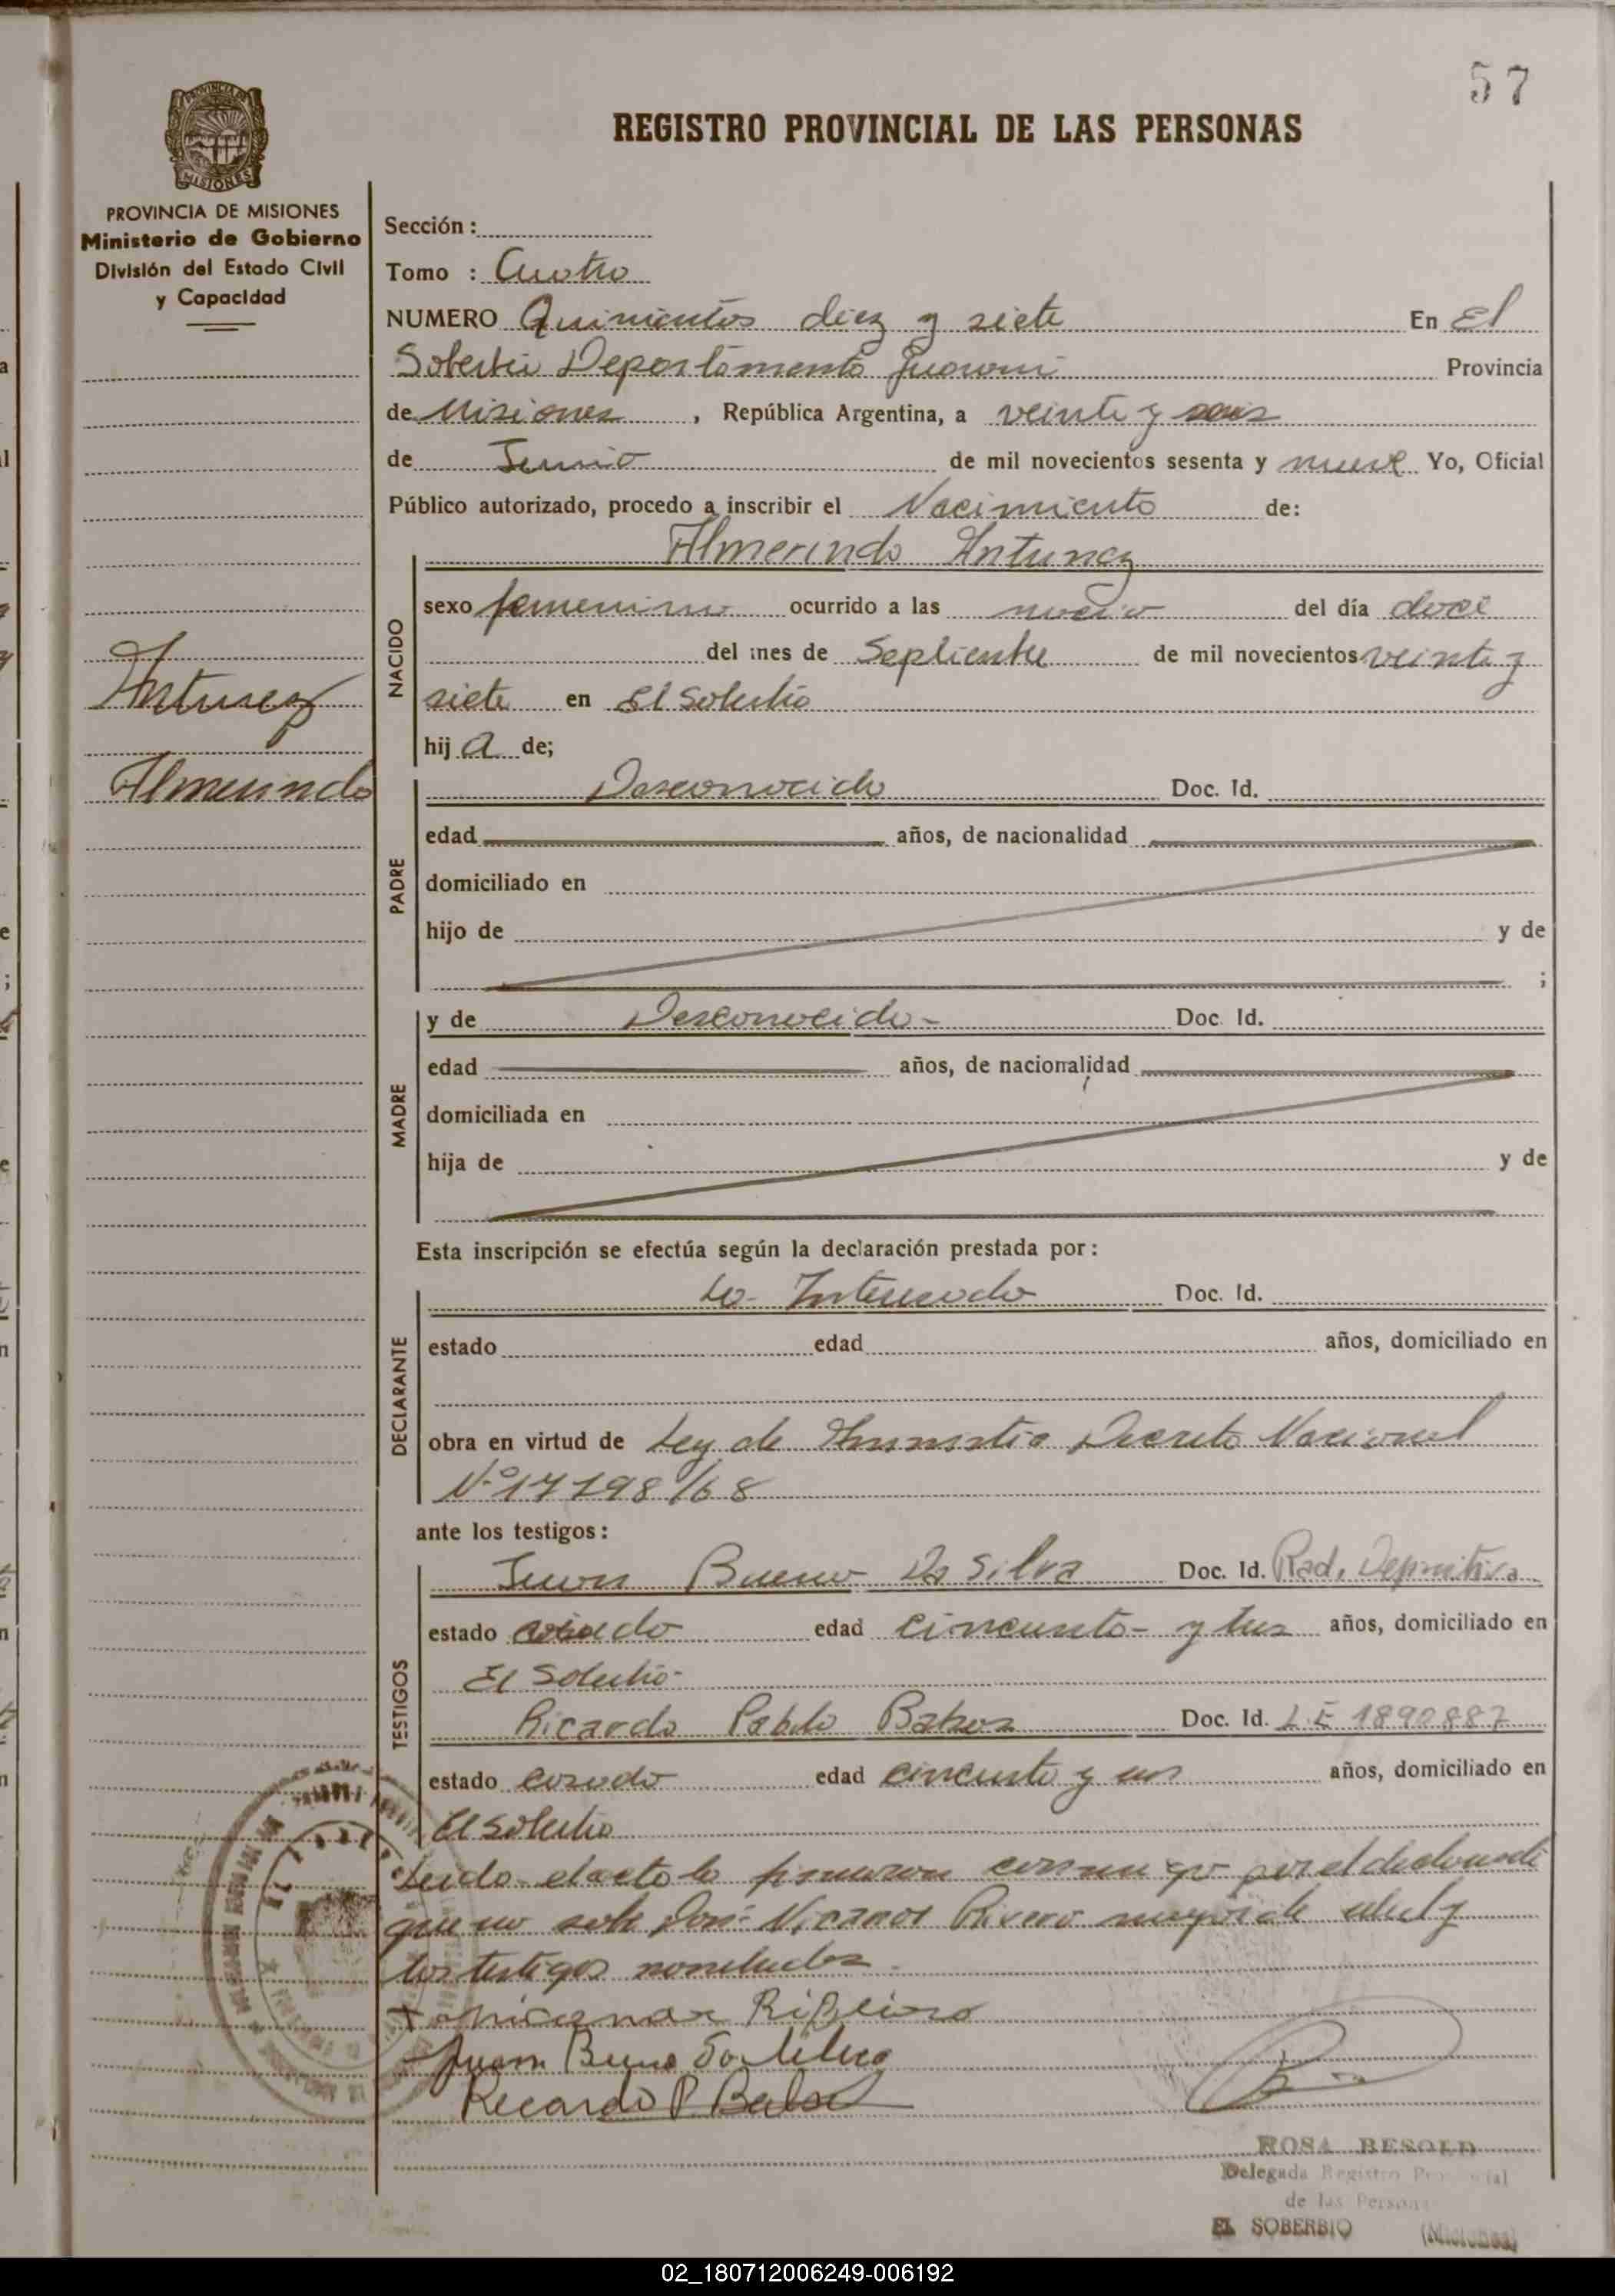 57
REGISTRO PROVINCIAL DE LAS PERSONAS
PROVINCIA DE MISIONES
Ministerio de Gobierno
División del Estado Civil
y Capacidad
Antunez
Almerindo
Sección:
Tomo : Cuatro
NUMERO Quinientos diez y siete En El
Soberbio Departamento Guarani Provincia
de Misiones, República Argentina, a veinte y seis
de Junio de mil novecientos sesenta y nueve Yo, Oficial
Público autorizado, procedo a inscribir el Nacimiento de:
Almerindo Antunez
NACIDO
sexo femenino ocurrido a las del día doce
del mes de Septiembre de mil novecientos veinte y
siete en El Soberbio
hija de;
PADRE
Desconocido Doc. Id.
edad años, de nacionalidad
domiciliado en
hijo de y de
;
MADRE
y de Desconocido- Doc. Id.
edad años, de nacionalidad
domiciliada en
hija de y de
Esta inscripción se efectúa según la declaración prestada por:
DECLARANTE
La Interesada Doc. Id.
estado edad años, domiciliado en
obra en virtud de Ley de Amnistia Decreto Nacional
Nº 17198/68
ante los testigos:
TESTIGOS
Juan Bueno Da Silva Doc. Id. Rad. Definitiva
estado edad cincuenta y tres años, domiciliado en
El Soberbio-
Ricardo Pablo Doc. Id. L.E 1890887
estado casado edad cincuenta y un años, domiciliado en
El Soberbio
Leido el acta la firmaron conmigo por el declarante
que no sabe Don Nicanor Rivero mayor de edad y
los testigos nombrados
Nicanor
Juan Bueno Da Silva
Ricardo P
ROSA RESOLD
Delegada Registro Provincial
de las Personas
EL SOBERBIO (Misiones)
02_180712006249-006192